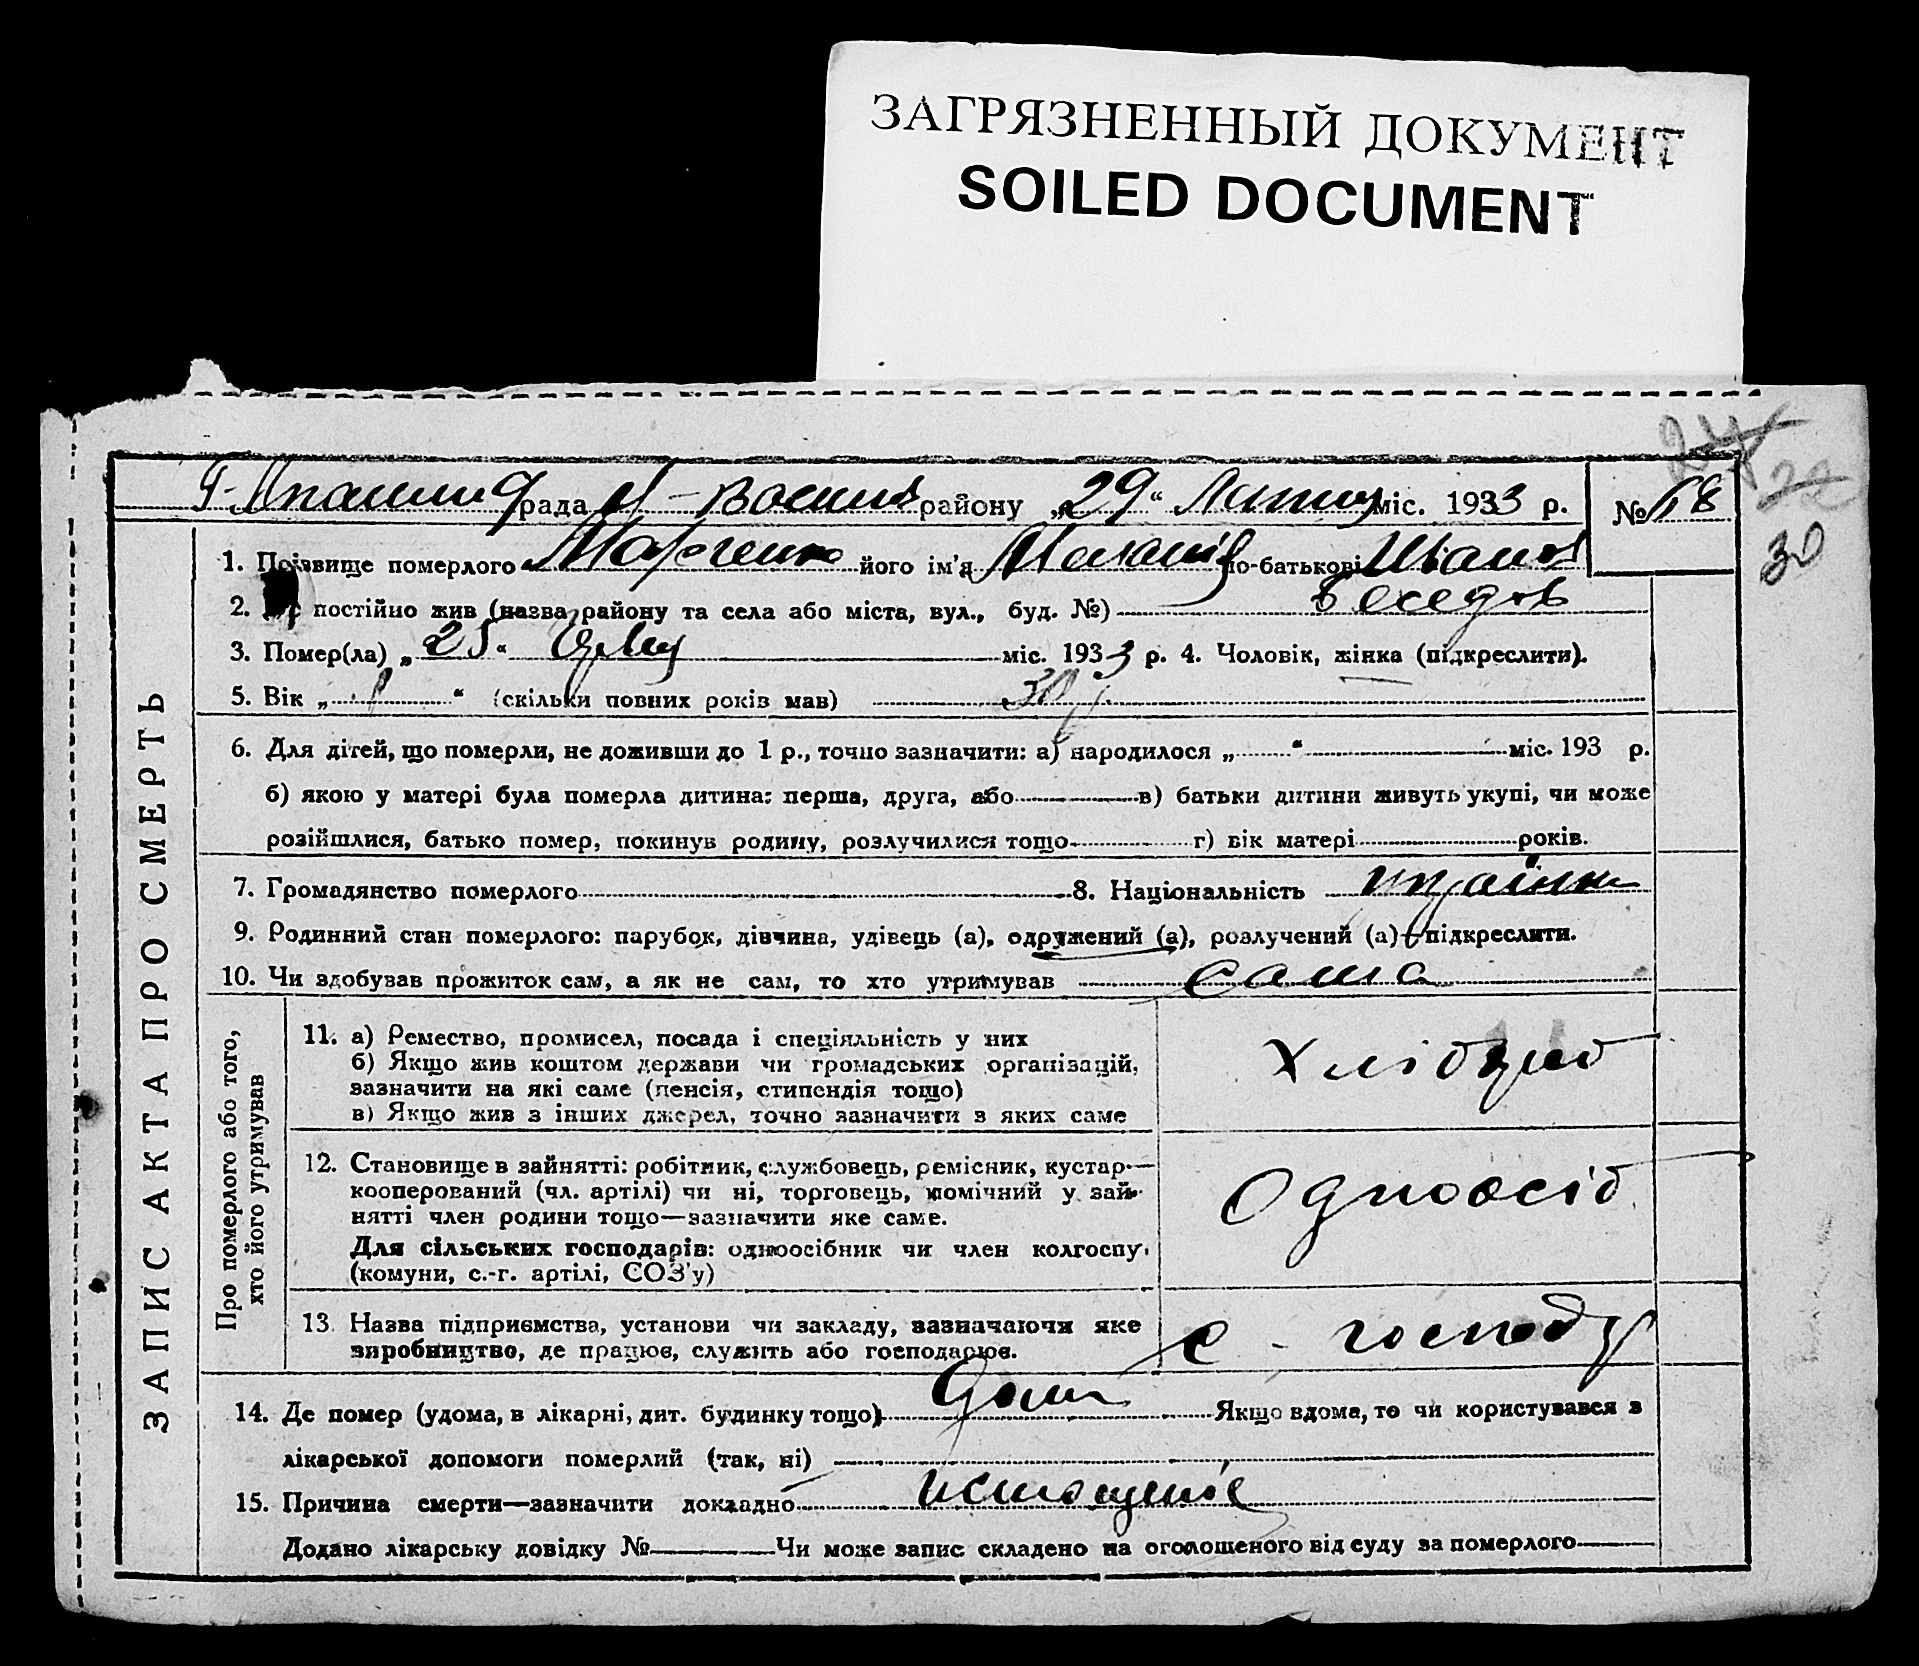 ЗАГРЯЗНЕННЫЙ ДОКУМЕНТ
SOILED DOCUMENT
24
22
30
рада району „29“ міс. 1933 р. № 68
ЗАПИС АКТА ПРО СМЕРТЬ
1. Прізвище померлого Марченко його ім'я по-батькові Иванов
2. Де постійно жив (назва району та села або міста, вул., буд. №)
3. Помер(ла) „25“ міс. 1933 р. 4. Чоловік, жінка (підкреслити).
5. Вік „ “ (скільки повних років мав) 30
6. Для дітей, що померли, не доживши до 1 р., точно зазначити: а) народилося „ “ міс. 193 р.
б) якою у матері була померла дитина: перша, друга, або в) батьки дитини живуть укупі, чи може
розійшлися, батько помер, покинув родину, розлучилися тощо г) вік матері років.
7. Громадянство померлого 8. Національність україн
9. Родинний стан померлого: парубок, дівчина, удівець (а), одружений (а), розлучений (а)—підкреслити.
10. Чи здобував прожиток сам, а як не сам, то хто утримував сама
Про померлого або того,
хто його утримував
11. а) Ремество, промисел, посада і спеціяльність у них
б) Якщо жив коштом держави чи громадських організацій,
зазначити на які саме (пенсія, стипендія тощо)
в) Якщо жив з інших джерел, точно зазначити з яких саме
Хлібороб
12. Становище в зайнятті: робітник, службовець, ремісник, кустар—
кооперований (чл. артілі) чи ні, торговець, помічний у зай-
нятті член родини тощо—зазначити яке саме.
Для сільських господарів: одноосібник чи член колгоспу,
(комуни, с.-г. артілі, СОЗ'у)
Одноосіб
13. Назва підприємства, установи чи закладу, зазначаючи яке
виробництво, де працює, служить або господарює.
с - господ
14. Де помер (удома, в лікарні, дит. будинку тощо) дома Якщо вдома, то чи користувався з
лікарської допомоги померлий (так, ні)
15. Причина смерти—зазначити докладно истощеніе
Додано лікарську довідку № Чи може запис складено на оголошеного від суду за померлого